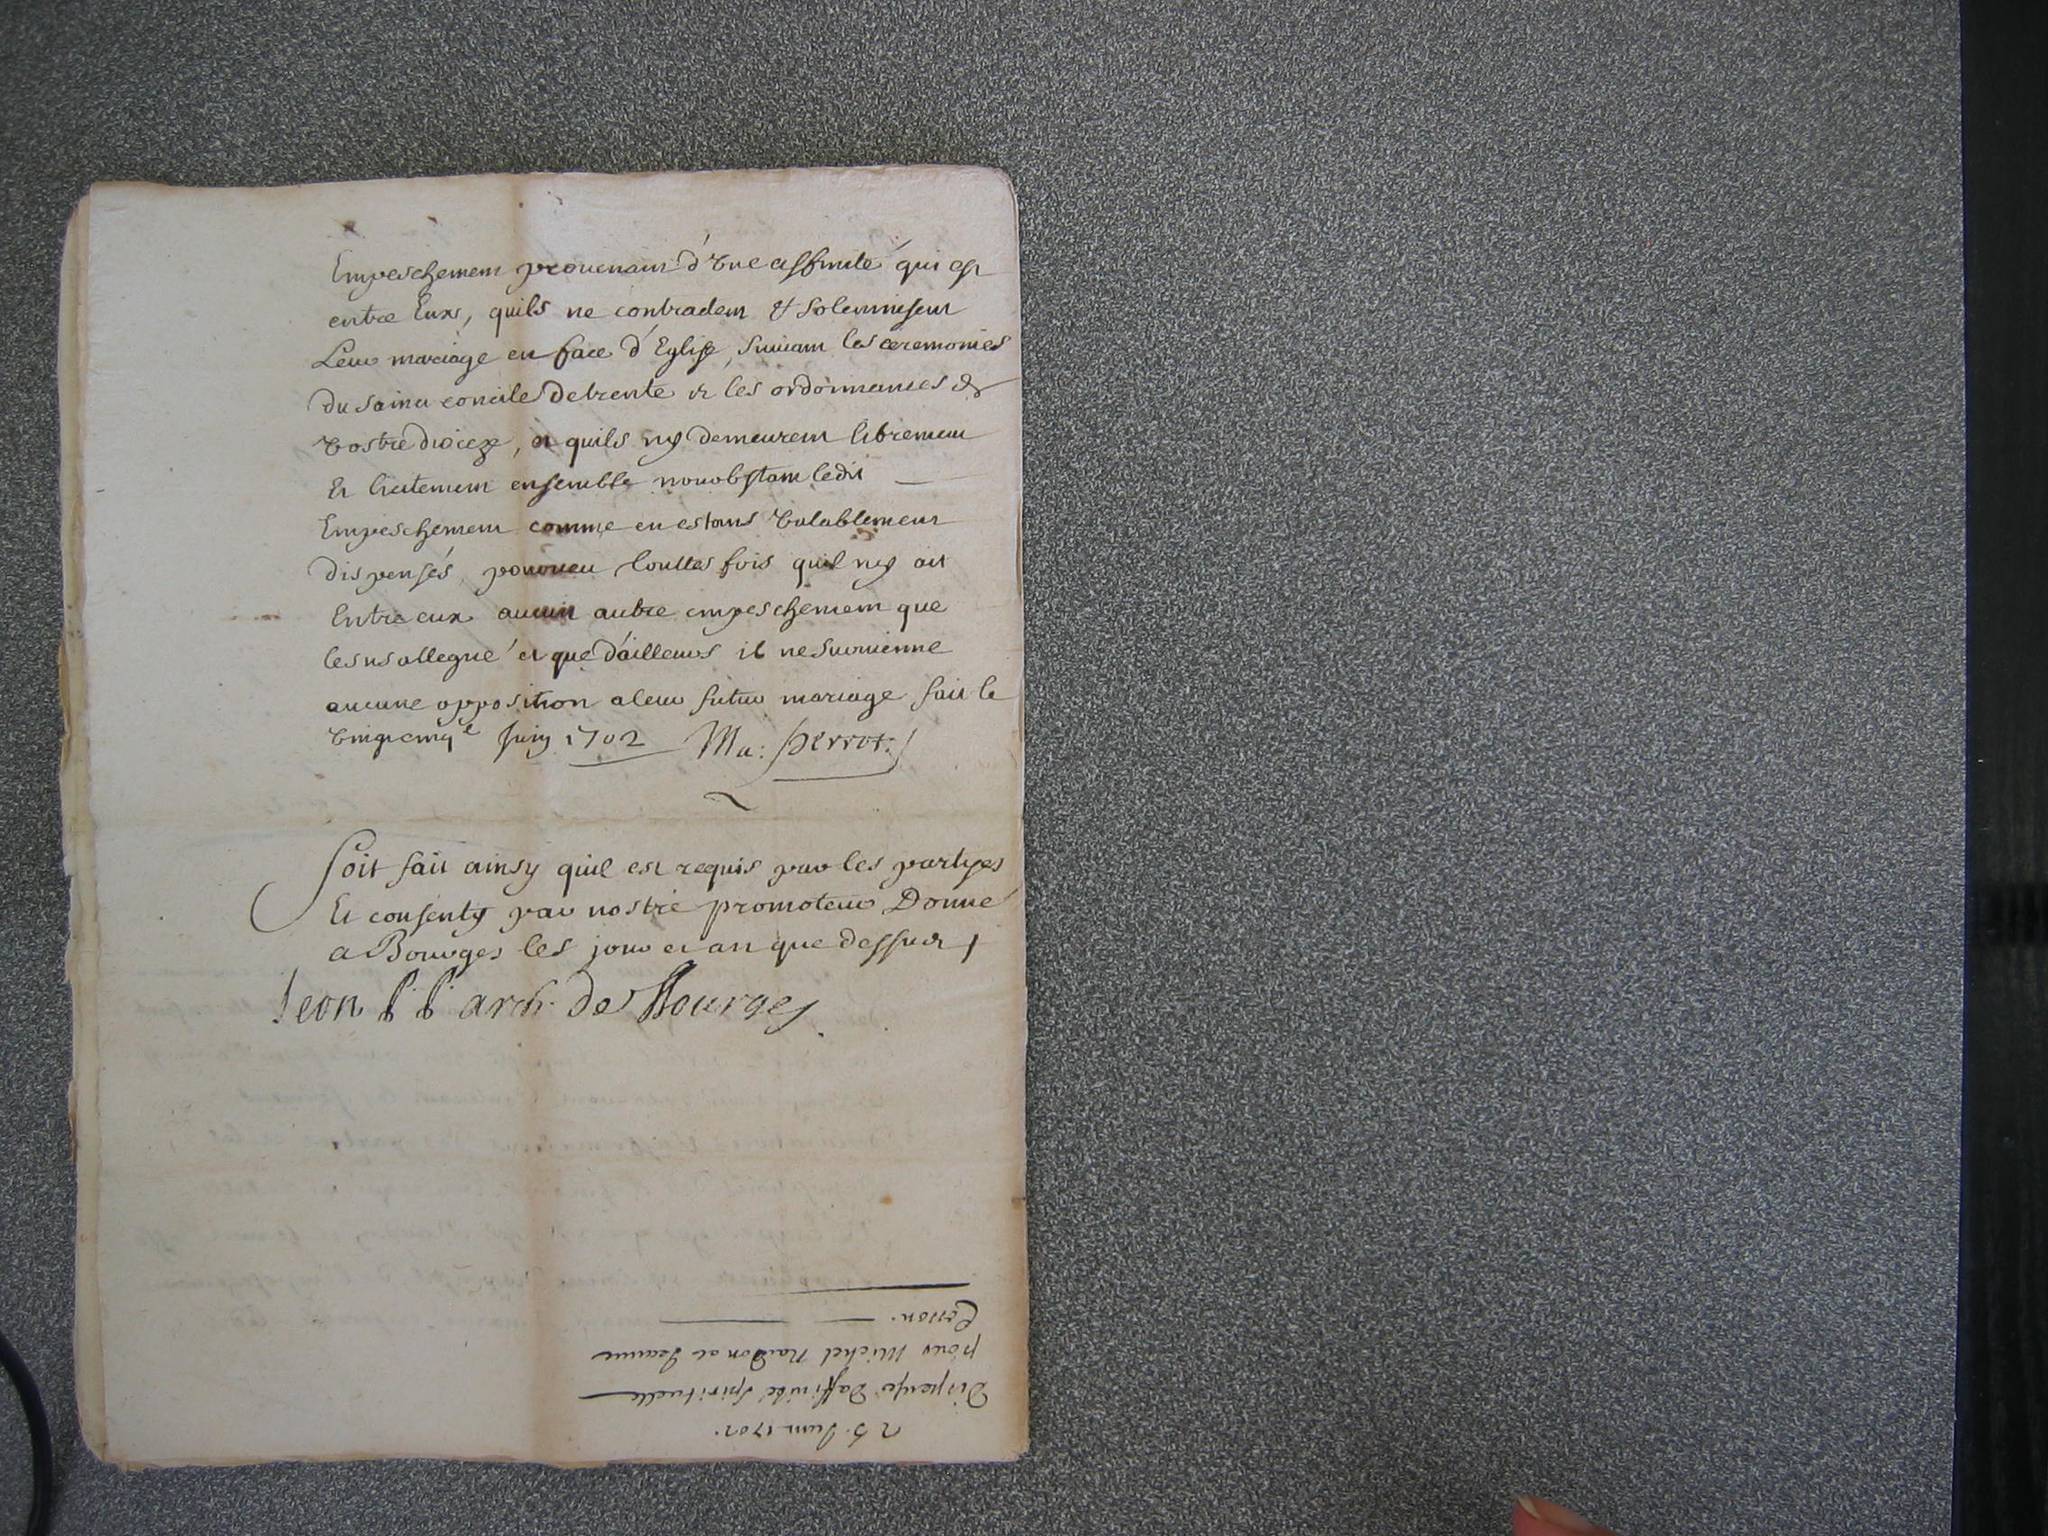 Empeschement provenant d'vne affinité qui est
entre Eux, quils ne contractent & solemnisent
Leur mariage en face d'Eglise, suivant les ceremonies
du saint concile de trente et les ordonnances de
vostre dioceze, et quils ny demeurent librement
Et licitement ensemble nonobstant ledit
Empeschement comme en estans valablement
dispensés, pourveu touttes fois quil ny ait
Entre eux aucun autre empeschement que
allegué et que d'ailleurs il ne survienne
aucune opposition a leur futur mariage fait le
vingt cinq.e Juin 1702 Ma: Perrot
Soit fait ainsy quil est requis par les partyes
Et consenty par nostre promoteur Donné
a Bourges les jour et an que dessus
Leon P. P. arch. de Bourges
25. Juin 1702.
Dispense Daffinité spirituelle
pour Michel Naudon et Jeanne